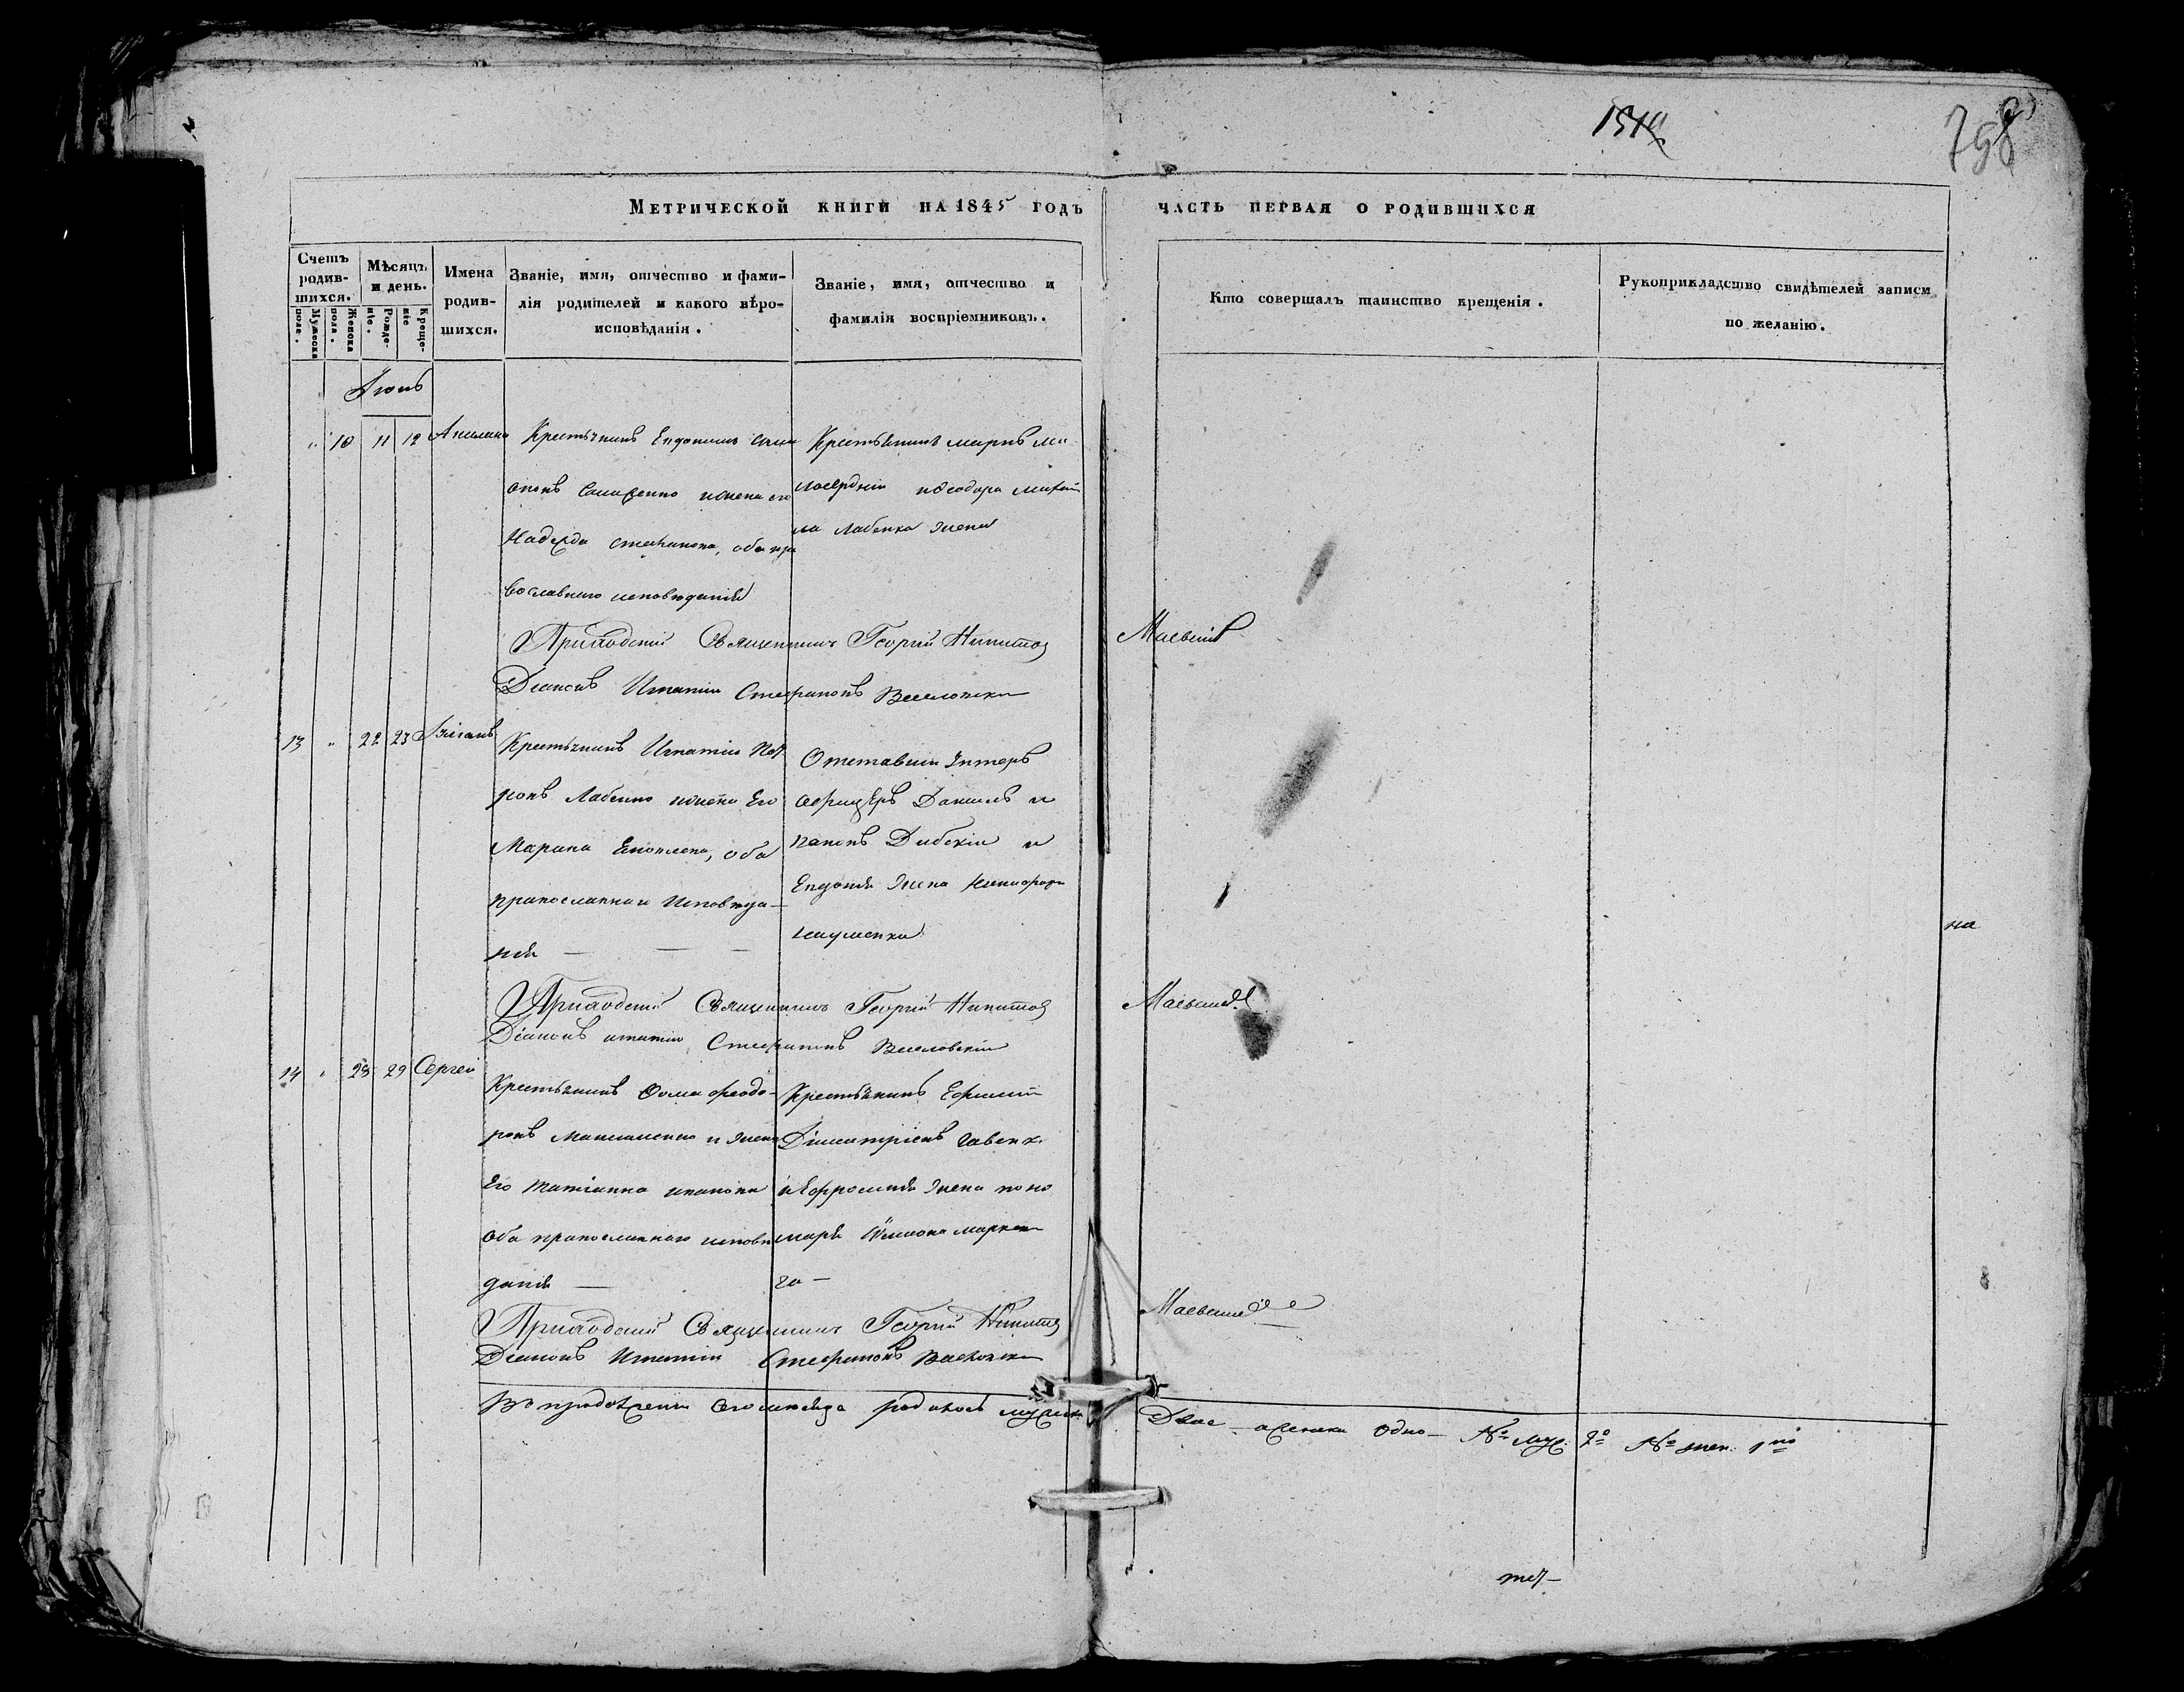 798
МЕТРИЧЕСКОЙ КНИГИ НА 1845 ГОДЪ ЧАСТЬ ПЕРВАЯ О РОДИВШИХСЯ
Счетъ родив-шихся.
Мужеска пола.
Женска пола.
Мѣсяцъ и день.
Рожде-ніе.
Креще-ніе
Имена родив-шихся.
Званіе, имя, отчество и фами-
лія родителей и какого вѣро-
исповѣданія.
Званіе, имя, отчество и
фамилія воспріемниковъ.
Кто совершалъ таинство крещенія.
Рукоприкладство свидѣтелей записи
по желанію.
Іюнь
10 11 12 Акилина Крестьянинъ
и жена его
Надежда Стефанова, оба пра
вославнаго исповѣданія
Крестьянинъ
Ѳеодора Михай
ла Лабенка жена
Приходскій Священникъ Георгій Никитов Маевскій
Діаконъ Игнатій Стефановъ Веселовскій
13 22 23
Крестьянинъ Игнатій Пет
ровъ Лабенко и жена Его
Марина Яковлева, оба
православнаго исповѣда-
нія
Отставній Унтеръ
Офицеръ Данилъ И
вановъ Дибскій и
Евдокія жена Никифора
Науменка
Приходскій Священникъ Георгій Никитов Маевскій
Діаконъ Игнатій Стефановъ Веселовскій
14 28 29 Сергей
Крестьянинъ Ѳома Ѳеодо-
ровъ Максименко и жена
Его Татіанна Иванова
Оба православнаго исповѣ
данія
Крестьянинъ Ефимій
Димитріевъ Савенк.
и Ефросинія жена поно
маря Симона Маркеви
ча
Приходскій Священникъ Георгій Никитов Маевскій
Діаконъ Игнатій Стефановъ Веселовскій
Въ продолженіи сего мѣсяца родилось мужеска Двое а женска одно